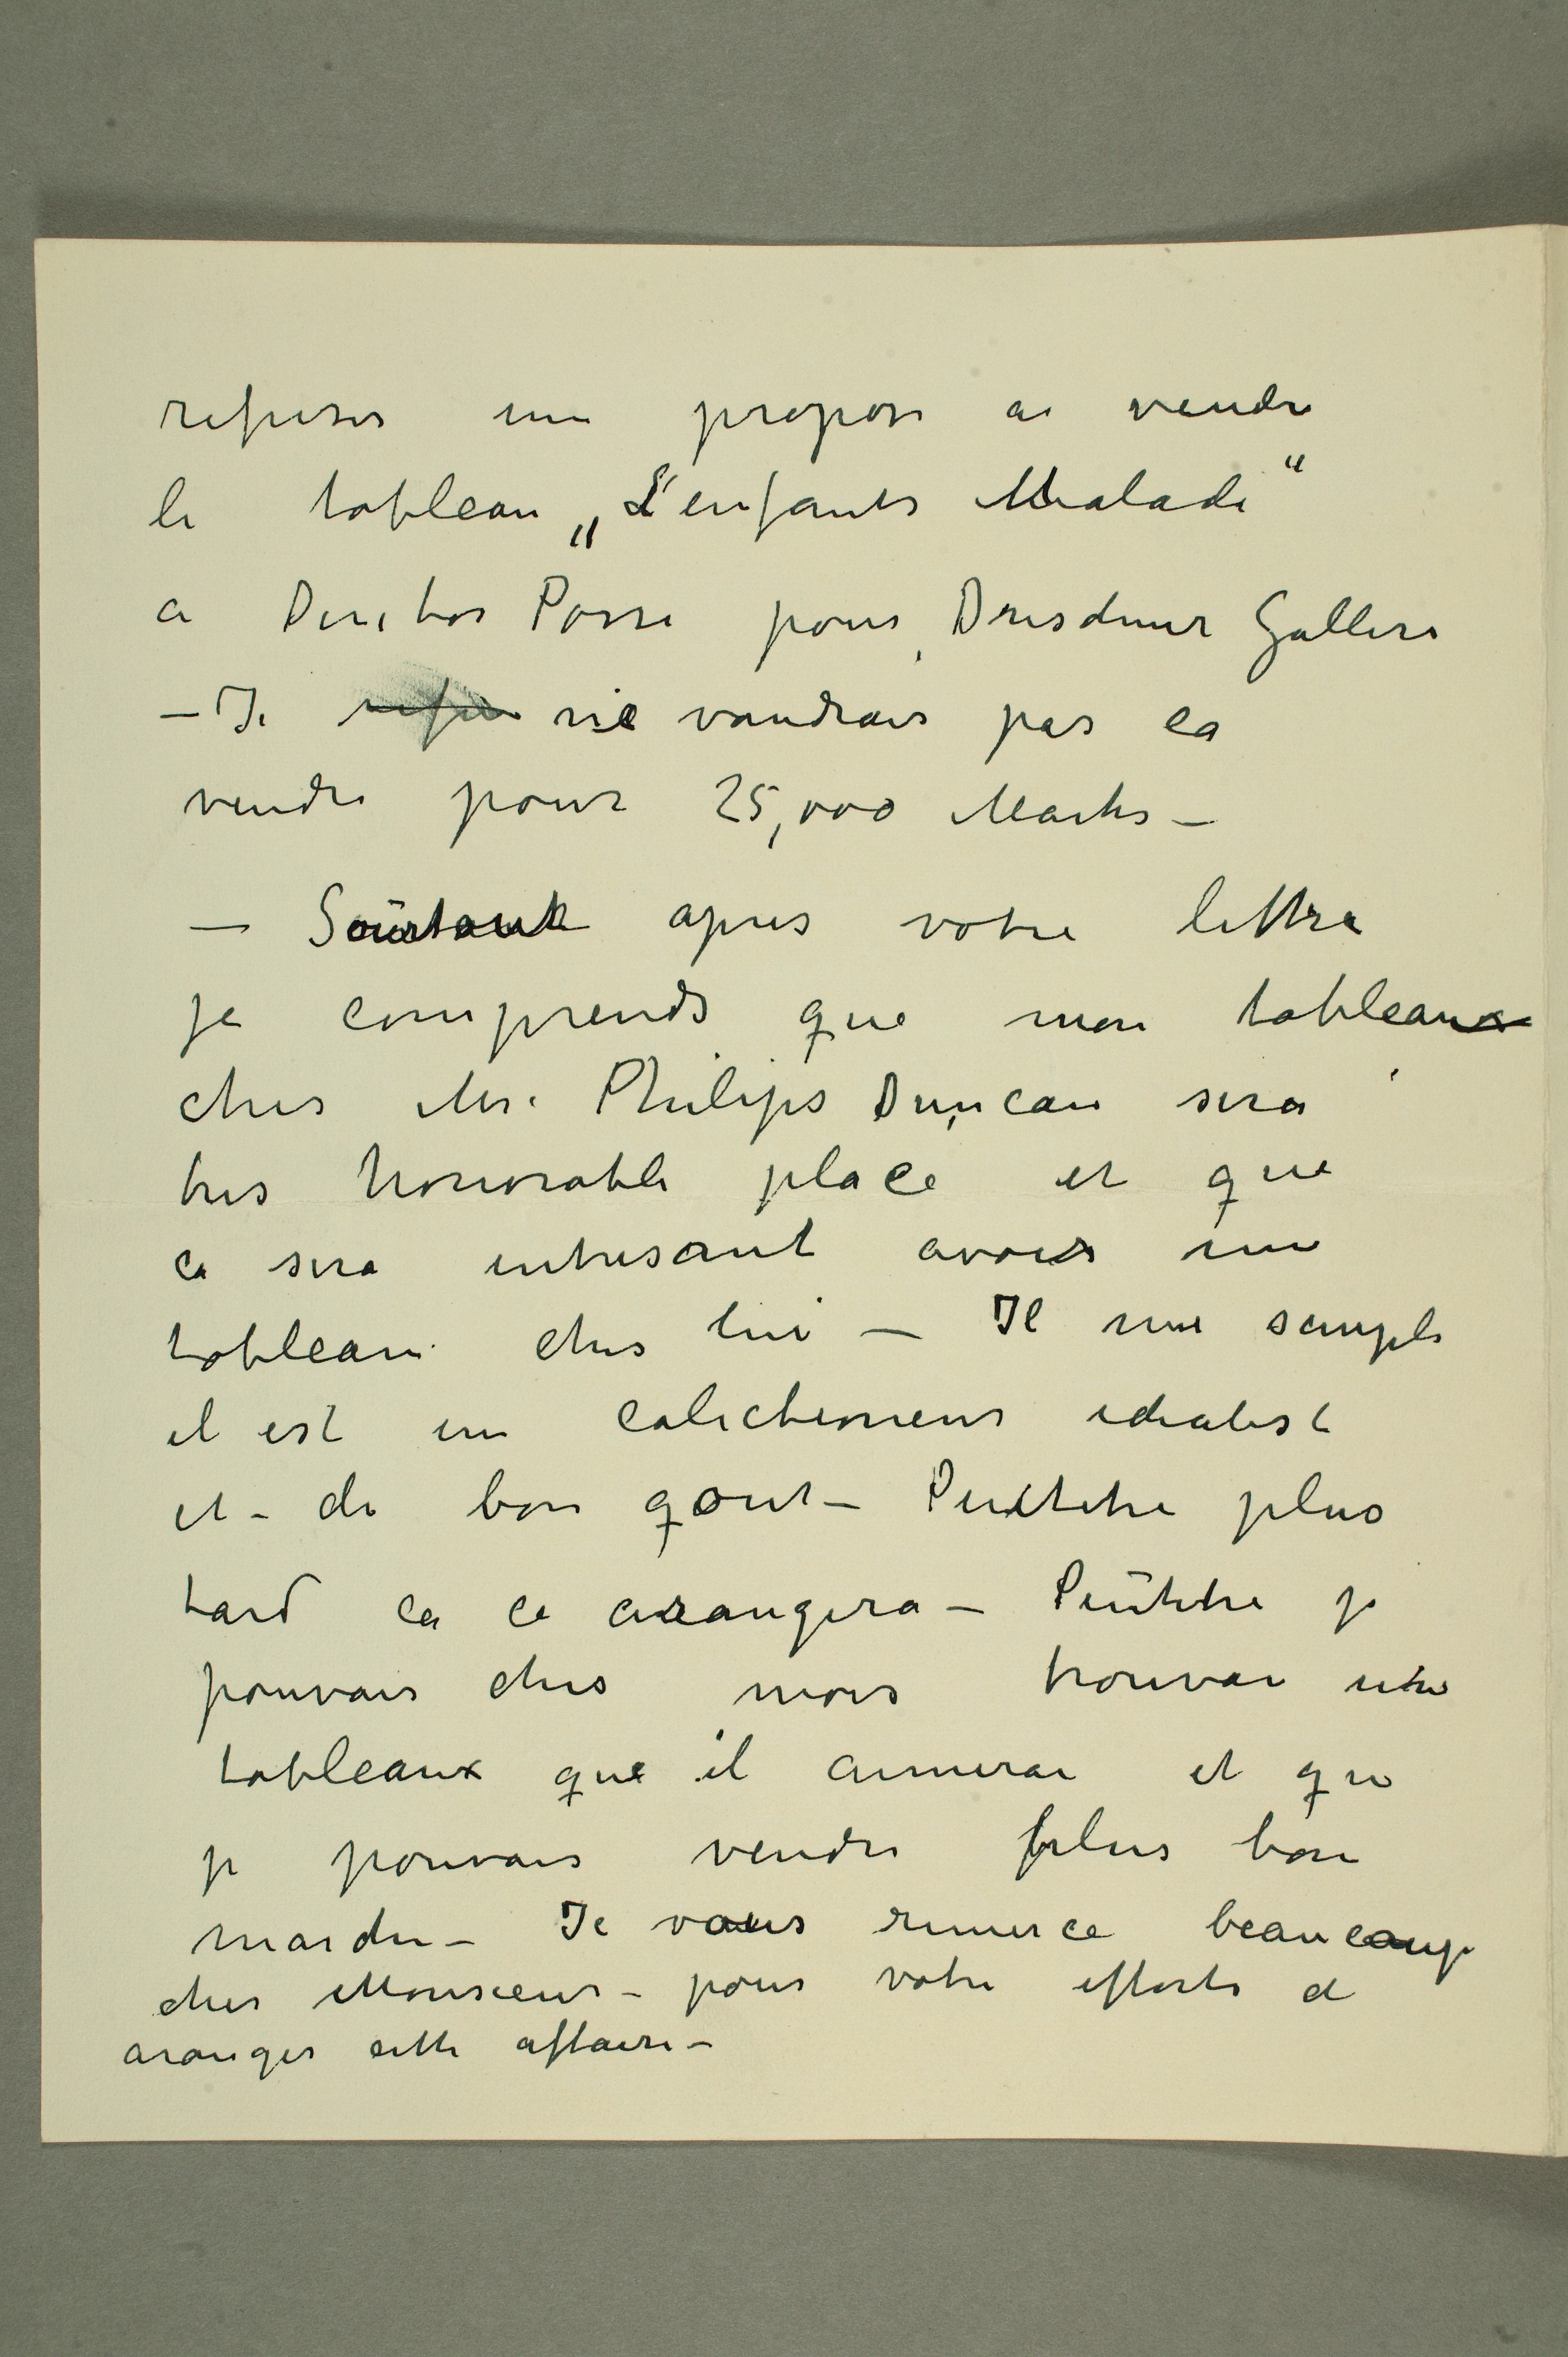 refuser une propose a vendre
le tableau „L'enfants Malade“
a Direktor Posse pour Dresdener Gallere
– Je refu ne vaudrais pas ca
vendre pour 25,000 Marks –
– Sourtout apres votre lettre
je comprends que mon tableaux
ches Mr. Philips Duncan sera
tres honorable place et que
ca sera intresant avoir une
tableau ches lui – Il me semple
il est un colectioneur idealist
et – de bon gout – Peutetre plus
tard ca ce arangera – Peutetre je
pouvais ches mois trouvai une
tableaux que il aimerai et que
je pouvais vendre plus bon
marche – Je vous remerce beaucoup
cher Monsieur – pour votre efforts a
aranger cette affaire –